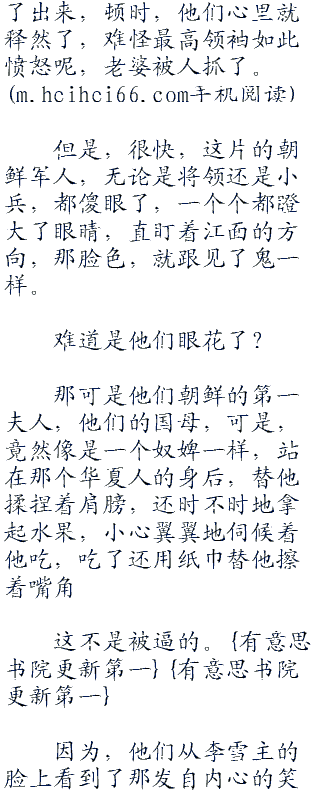 了出来，顿时，他们心里就
释然了，难怪最高领袖如此
愤怒呢，老婆被人抓了。
(m.hcihci66.com手机阅读)
但是，很快，这片的朝
鲜军人，无论是将领还是小
兵，都傻眼了，一个个都瞪
大了眼睛，直盯着江面的方
向，那脸色，就跟见了鬼一
样。
难道是他们眼花了？
那可是他们朝鲜的第一
夫人，他们的国母，可是，
竟然像是一个奴婢一样，站
在那个华夏人的身后，替他
揉捏着肩膀，还时不时地拿
起水果，小心翼翼地伺候着
他吃，吃了还用纸巾替他擦
着嘴角
这不是被逼的。{有意思
书院更新第一}{有意思书院
更新第一}
因为，他们从李雪主的
脸上看到了那发自内心的笑